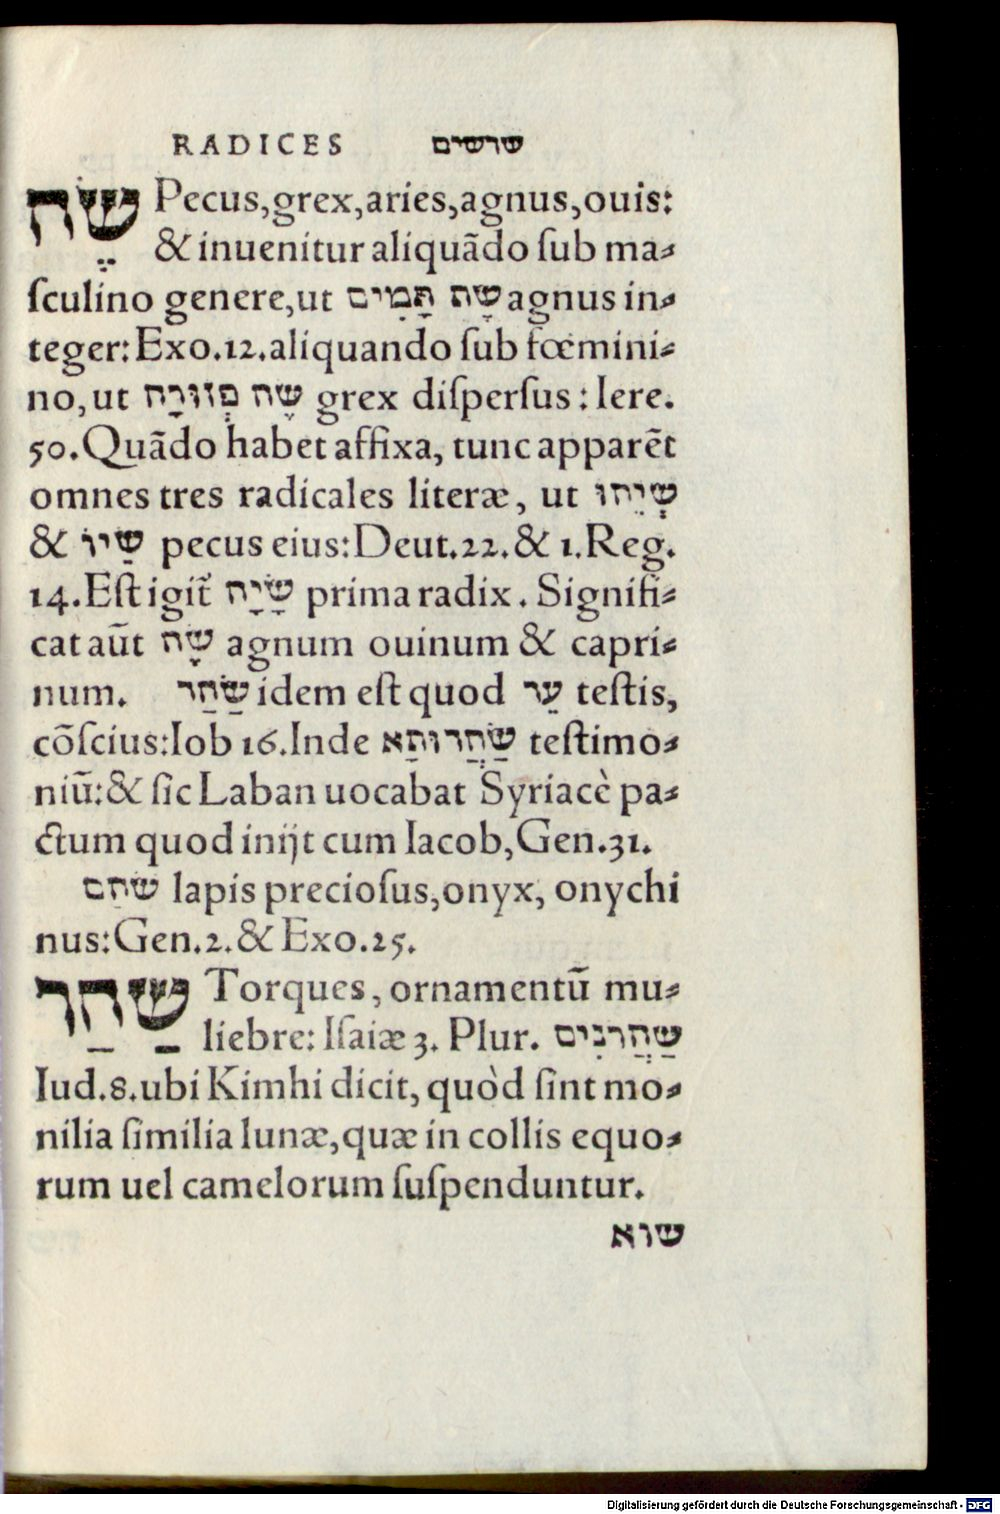 RADICES שרשים
שֶׂה Pecus,grex,aries,agnus,ouis:
& inuenitur aliquãdo ſub ma⸗
ſculino genere,ut שָׂה תָּמִים agnus in⸗
teger:Exo.12.aliquando ſub fœmini⸗
no,ut שָׂה פְזוּרָה grex diſperſus:Iere.
50.Quãdo habet affixa, tunc apparẽt
omnes tres radicales literæ, ut שְׂיֵהוּ
& שַׂיוֹ pecus eius:Deut.22.& 1.Reg.
14.Eſt igit̃ שָׂיָה prima radix. Signifi⸗
cat aũt שָׂה agnum ouinum & capri⸗
num. שַׂהַד idem eſt quod עֵד teſtis,
cõſcius:Iob 16.Inde שַׂהֲדוּתָא teſtimo⸗
niũ:& ſic Laban uocabat Syriacè pa⸗
ctum quod inijt cum Iacob,Gen.31.
שֹׁהַם lapis precioſus,onyx, onychi
nus:Gen.2.& Exo.25.
שַׂהַר Torques, ornamentũ mu⸗
liebre: Iſaiæ 3. Plur. שַׂהֲרֹנִים
Iud.8.ubi Kimhi dicit, quòd ſint mo⸗
nilia ſimilia lunæ,quæ in collis equo⸗
rum uel camelorum ſuſpenduntur.
שוא
Digitalisierung gefördert durch die Deutsche Forschungsgemeinschaft - DFG